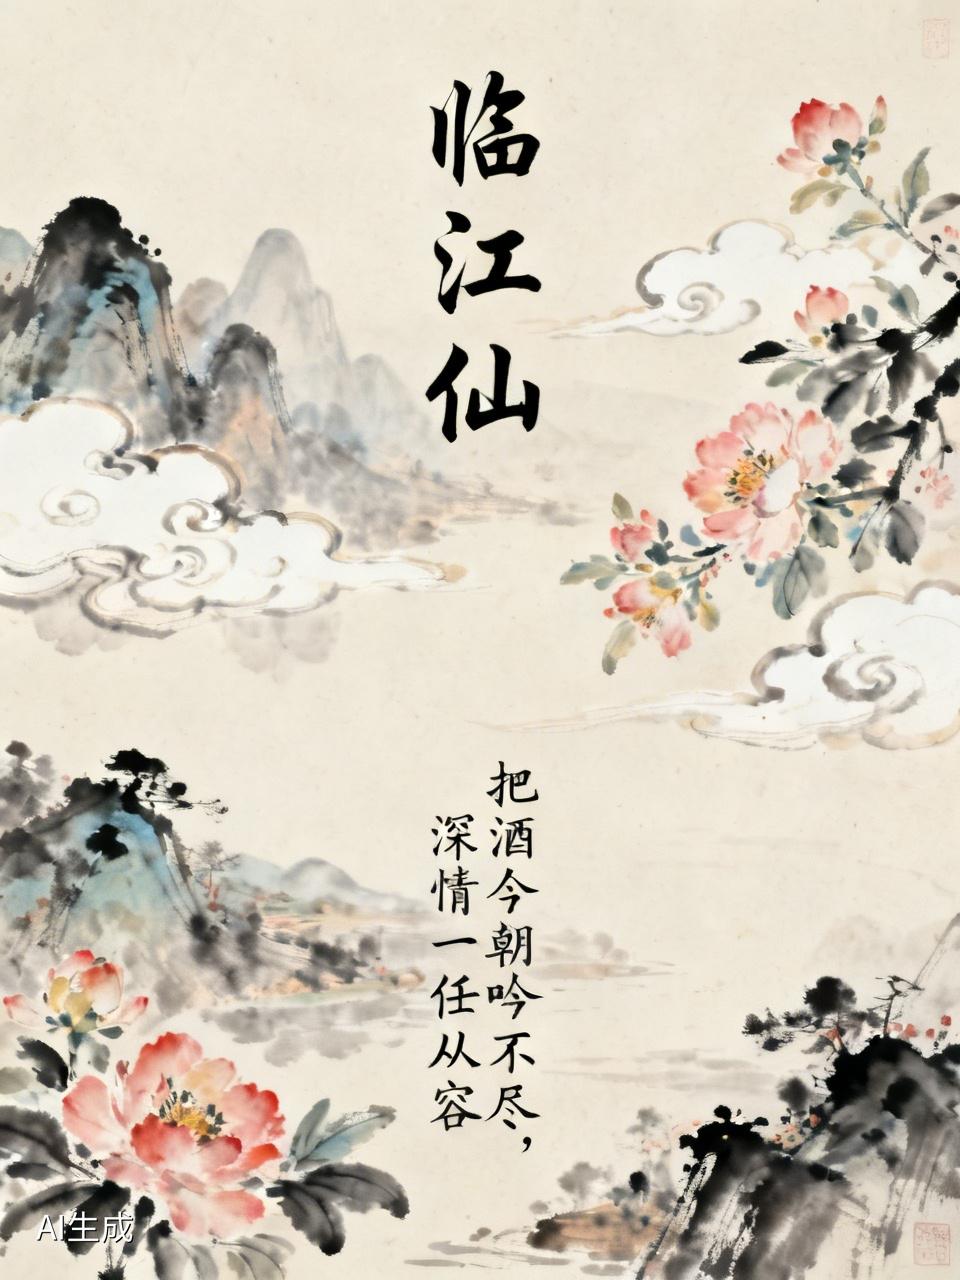 临江仙
把酒今朝吟不尽，
深情一任从容
AI生成